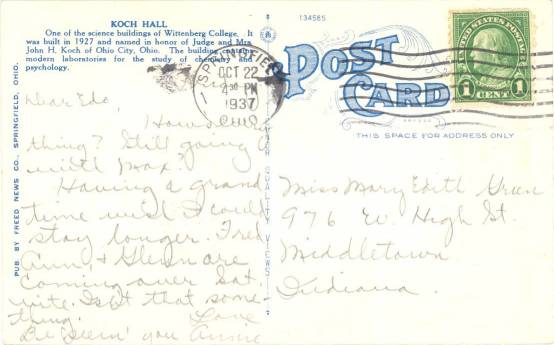 KOCH HALL
One of the science buildings of Wittenberg College. It
was built in 1927 and named in honor of Judge and Mrs.
John H. Koch of Ohio City, Ohio. The building contains
modern laboratories for the study of chemistry and
psychology.
134585
POST
CARD
THIS SPACE FOR ADDRESS ONLY
UNITED STATES POSTAGE
1 CENT 1
OCT 22
PM
1937
OHIO
PUB. BY FREED NEWS CO., SPRINGFIELD, OHIO.
Dear Eda,
How's
thing? Still going
with Max?
Having a grand
time wish I could
stay longer. Fred
Ann, & Glenn are
coming over Sat.
nite. Isn't that some-
thing. Love
Be seein' you Annie
Miss Mary Edith
976 W. High St.
Middletown
Indiana.